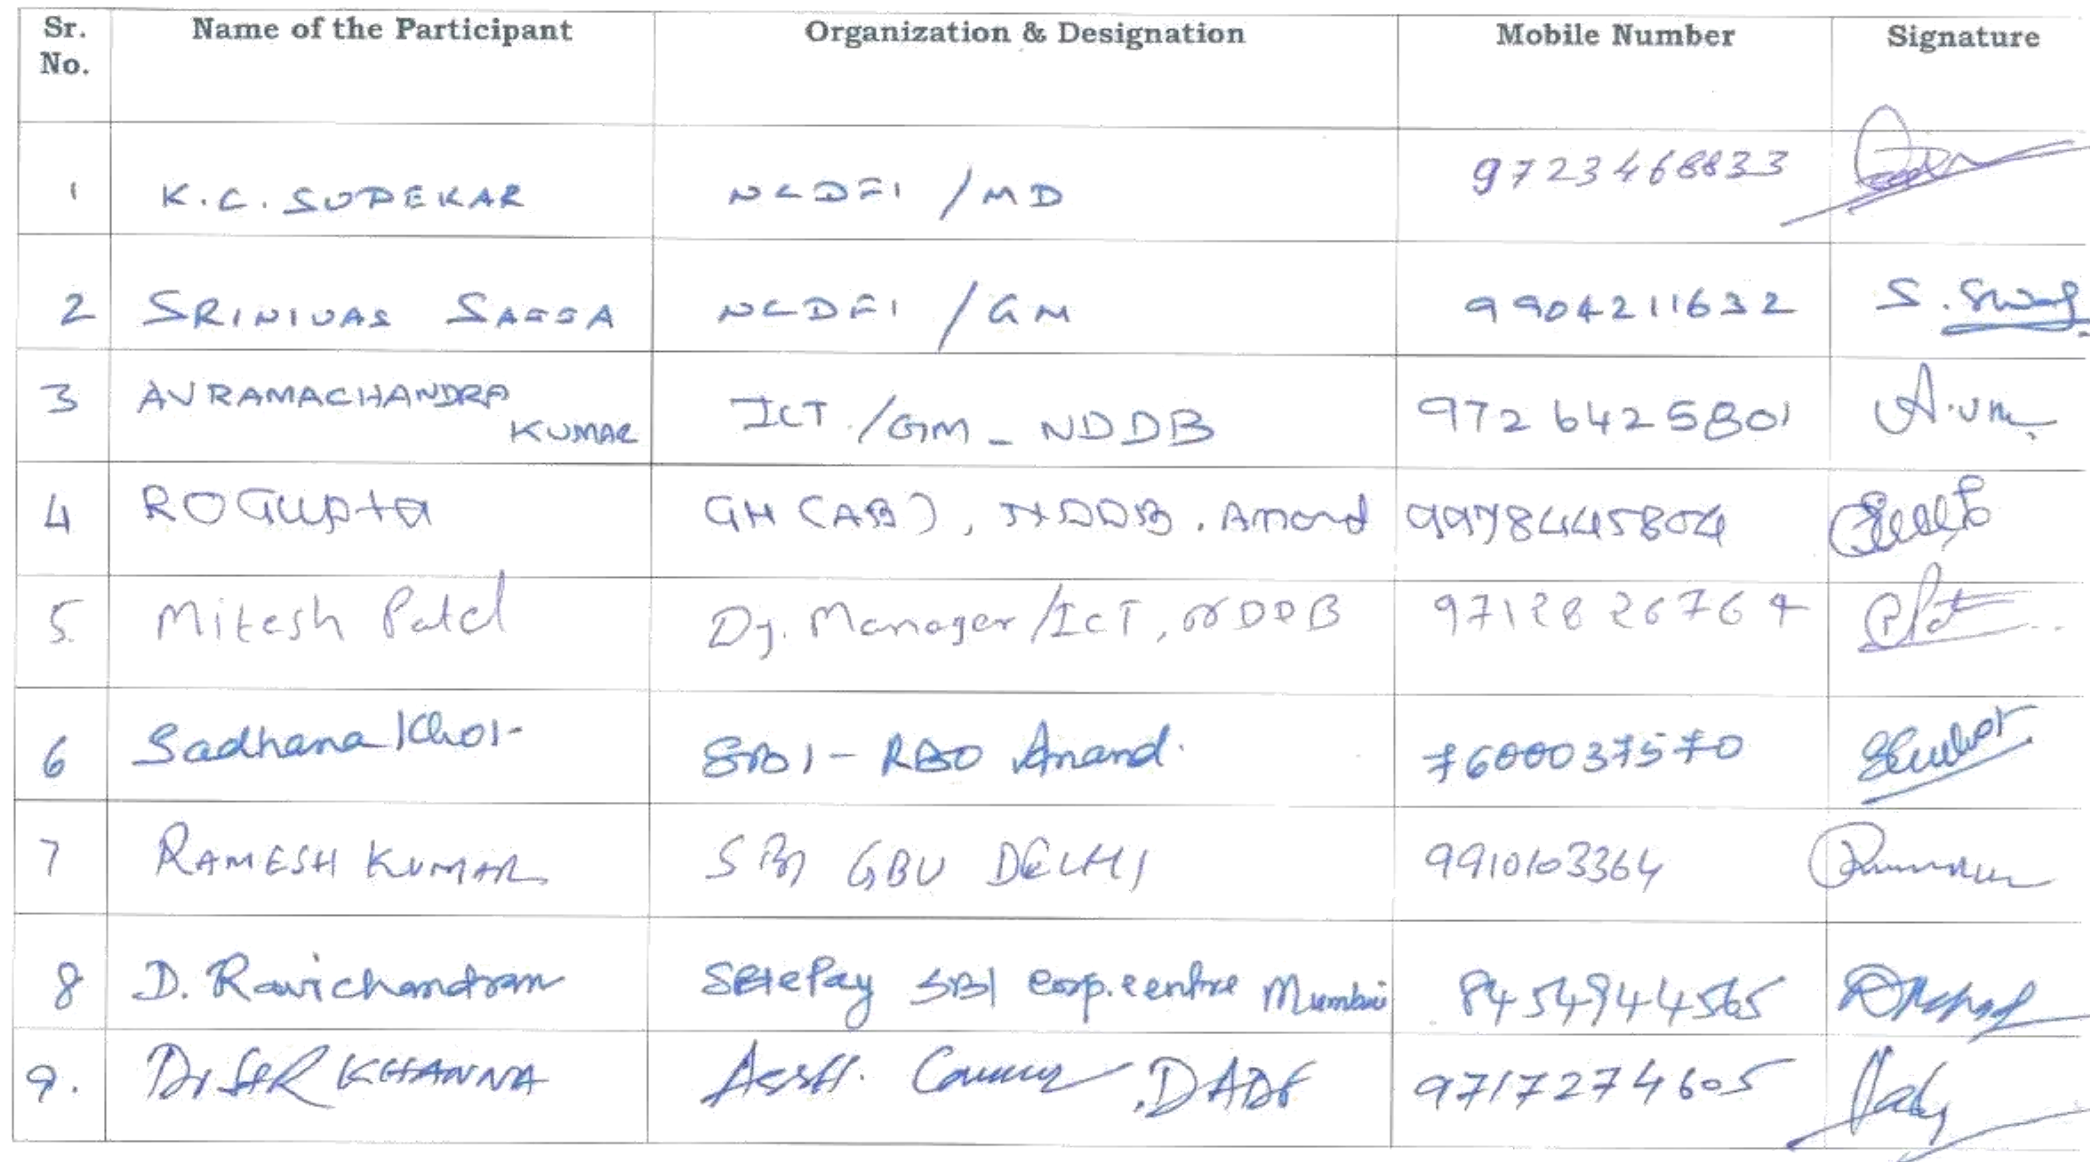 Sr. No. Name of the Participant Organization & Designation Mobile Number Signature
1 K.C. SUPEKAR NCDFI /MD 9723468833
2 SRINIVAS SAGGA NCDFI /GM 9904211632 S.
3 AV RAMACHANDRA KUMAR ICT /GM - NDDB 9726425801
4 RO Gupta GH (AB), NDDB. Anand 9978445804
5. Mitesh Patel Dy. Manager/ICT, NDDB 9712826764
6 Sadhana SBI - RBO Anand. 7600037570
7 RAMESH KUMAR SBI GBU DELHI 9910103364
8 D. Ravichandran SBIePay SBI Corp. centre Mumbai 8454944565
9. Dr KHANNA Asstt. DADF 9717274605